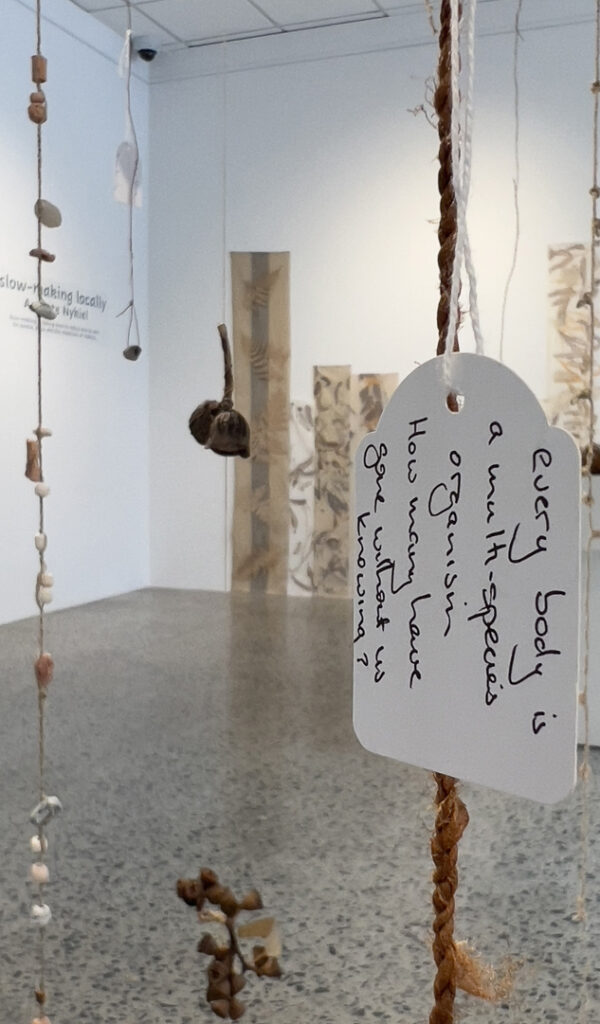 slow-making locally
Annette Nykiel
every body is
a multi-species
organism
How many have
gone without us
knowing?